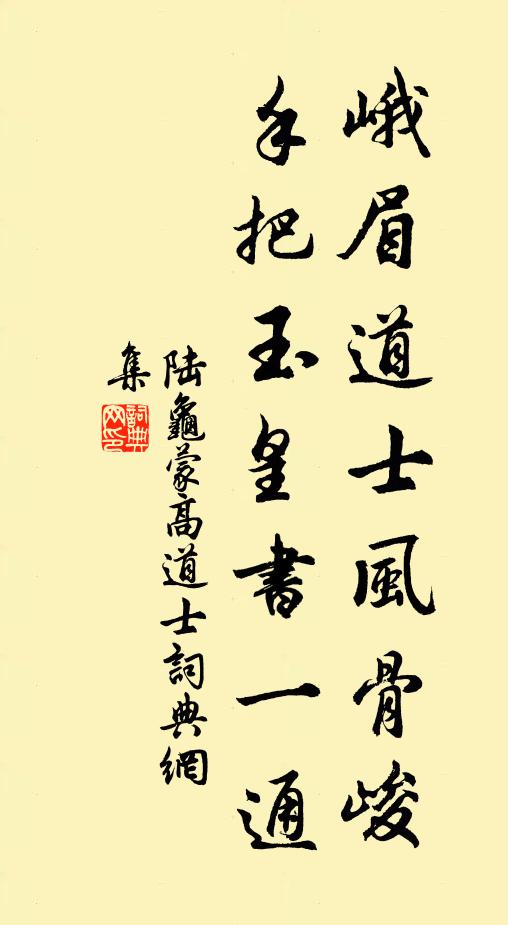 峨眉道士風骨峻
手把玉皇書一通
陸龜蒙高道士詞典網
集
詞典网印